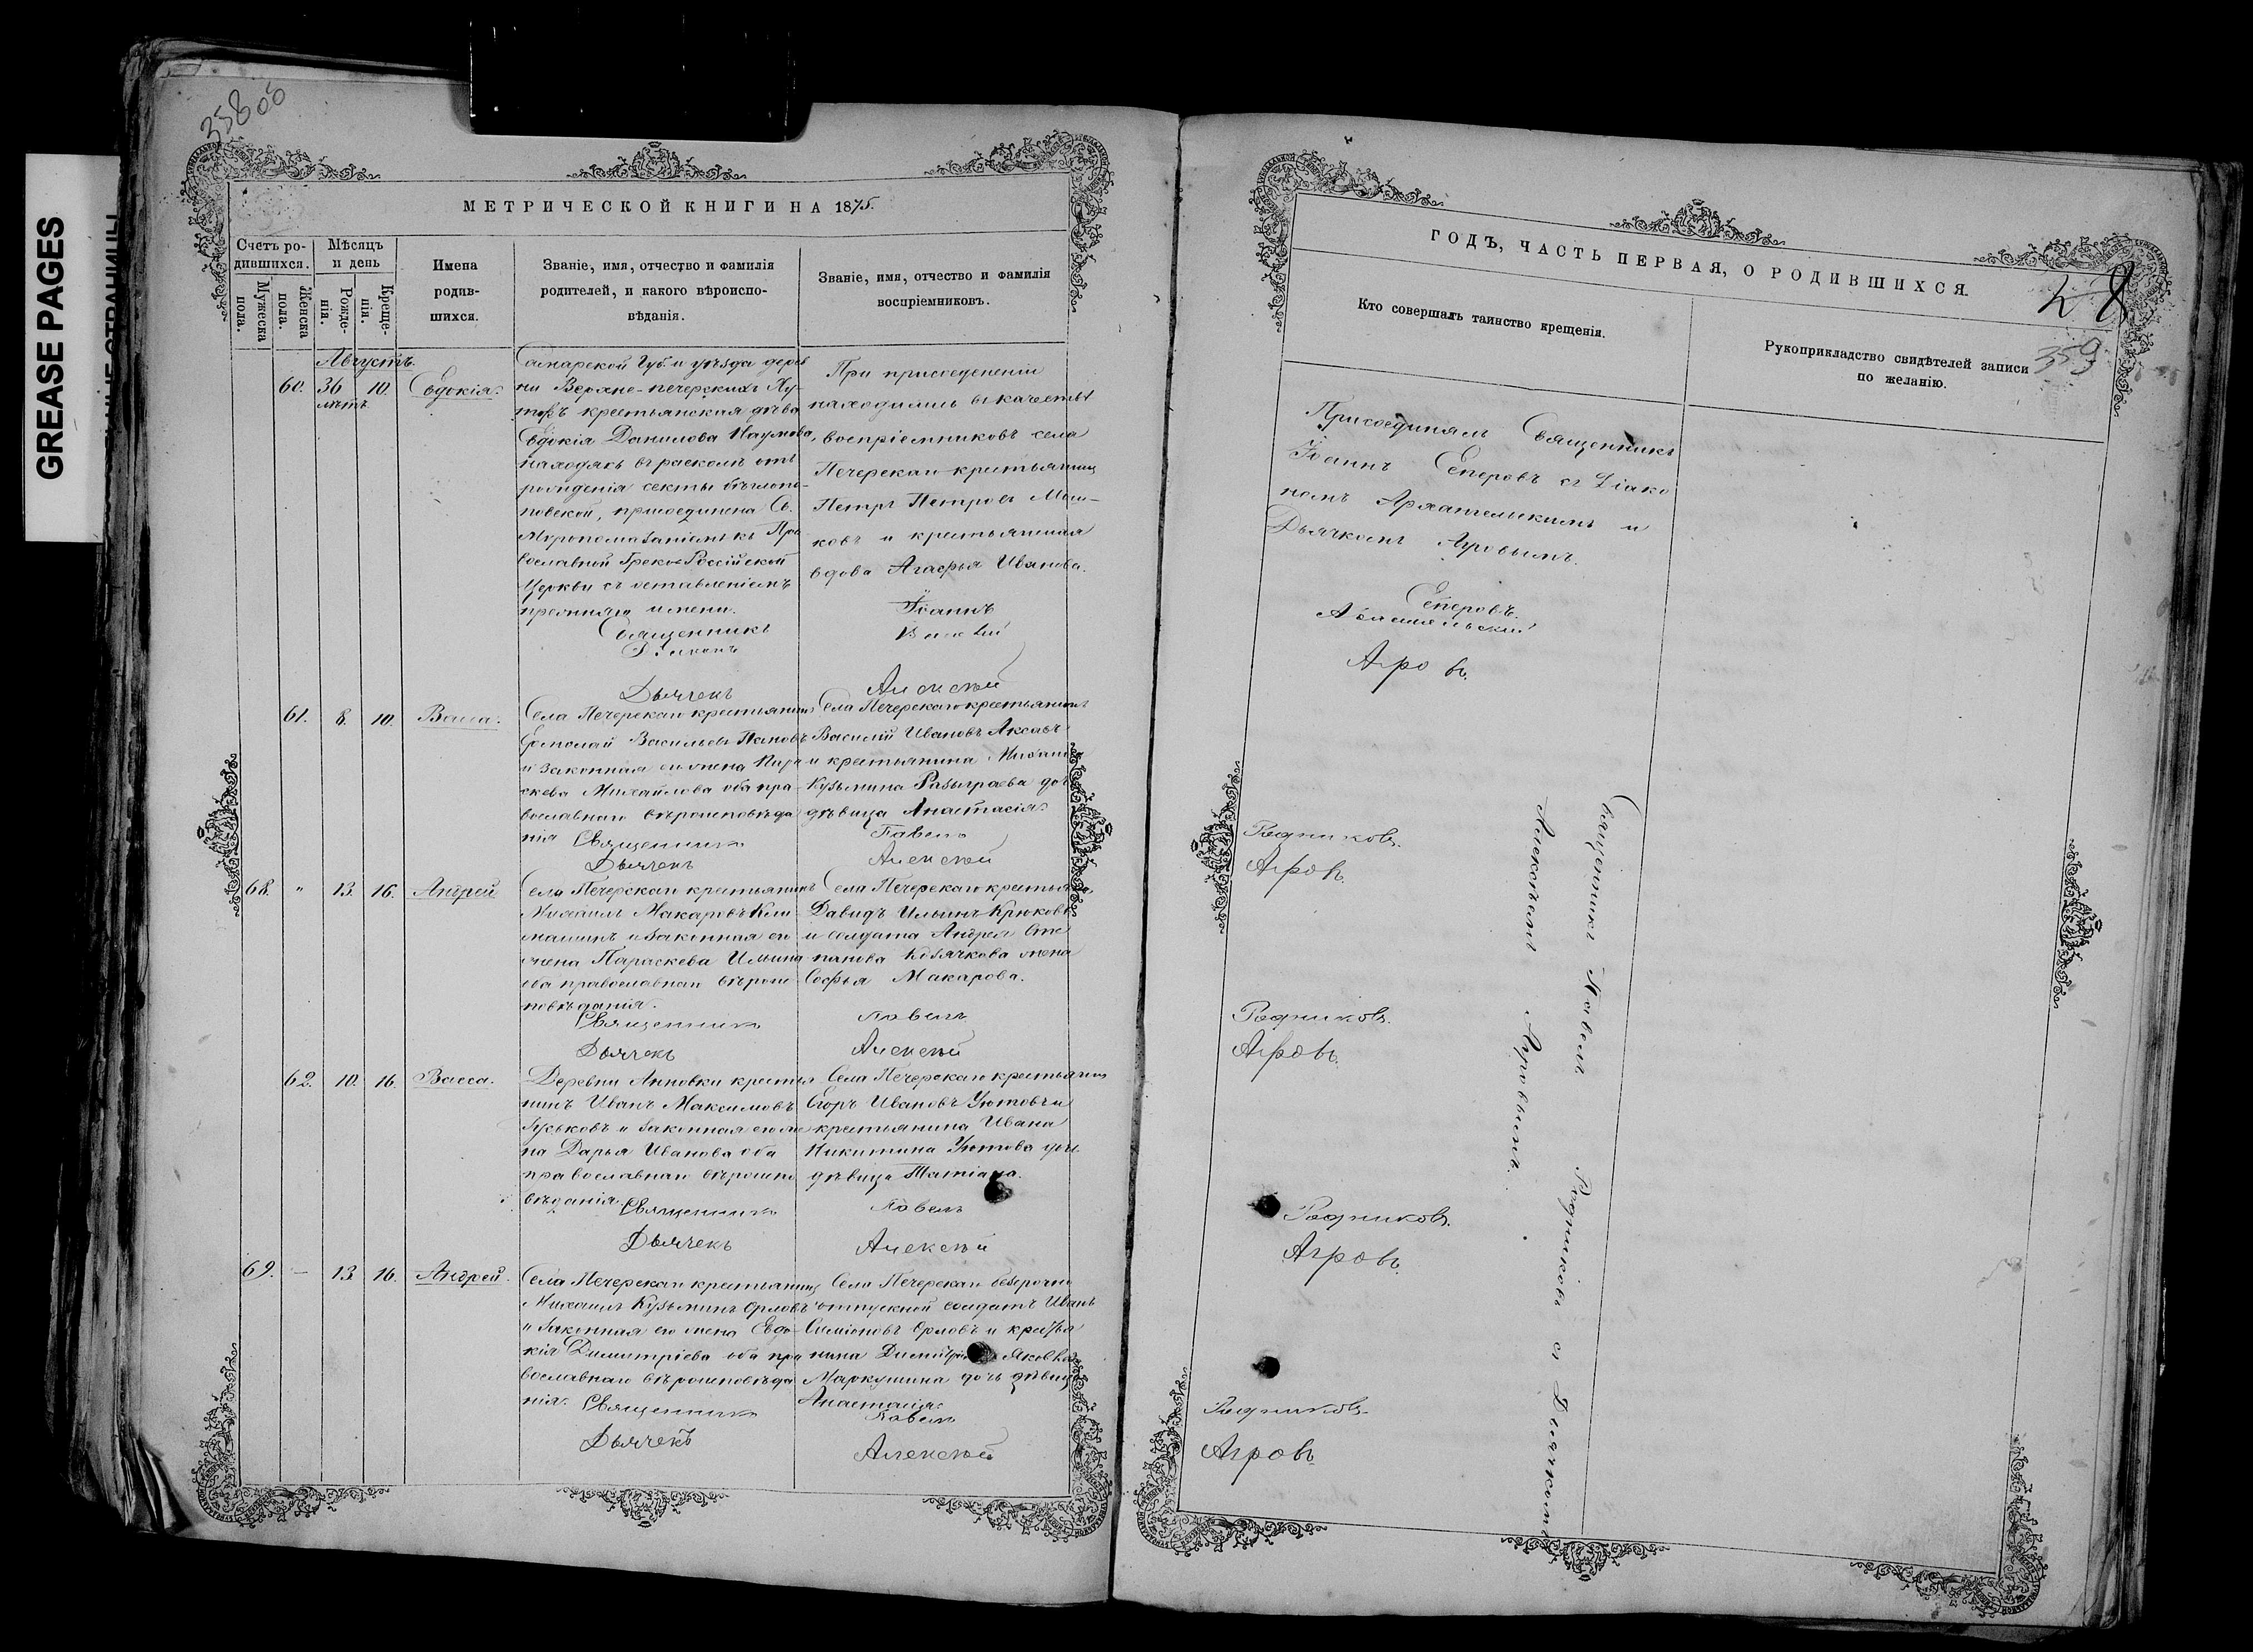 GREASE PAGES
35806
МЕТРИЧЕСКОЙ КНИГИ НА 1875.
Счетъ родившихся.
Мужеска пола.
Женска пола.
Мѣсяцъ и день
Рожденія.
Крещенія.
Имена родившихся.
Званіе, имя, отчество и фамилія
родителей, и какого вѣроиспо-
вѣданія.
Званіе, имя, отчество и фамилія
воспріемниковъ.
Августъ.
60. 36 лѣтъ 10. Евдокія.
Самарской Губ. и уѣзда дерев
ни Верхне-печерскихъ Ху-
торъ крестьянская дѣва
Евдокія Данилова Наумова,
находясь въ расколѣ отъ
рожденія секты бѣглопо-
повской, присоединена Св.
Мѵропомазаніемъ къ Пра
вославной Греко-Россійской
Церкви съ оставленіемъ
прежняго имени.
Священникъ
Діаконъ
Дьячекъ
При присоединеніи
находились въ качествѣ
воспріемниковъ села
Печерскаго крестьянинъ
Петръ Петровъ
и крестьянская
вдова Агафья Иванова.
Іоаннъ
Алексѣй
61. 8. 10. Васса.
Села Печерскаго крестьянинъ
Ермолай Васильевъ Поповъ
и законная его жена Пара
скева Михайлова оба пра
вославнаго вѣроисповѣда
нія Священникъ
Дьячекъ
Села Печерскаго крестьянинъ
Василій Ивановъ
и крестьянина Михаила
Кузьмина дочь
дѣвица Анастасія.
Павелъ
Алексѣй
68. " 13. 16. Андрей
Села Печерскаго крестьянинъ
Михаилъ Макаровъ Кли
машинъ и законная его
жена Параскева Ильина
оба православнаго вѣроис
повѣданія.
Священникъ
Дьячекъ
Села Печерскаго крестьянинъ
Давидъ Ильинъ Крюковъ
и солдата Андрея Сте
панова Козячкова жена
Софья Макарова.
Павелъ
Алексѣй
62. 10. 16. Васса.
Деревни Анновки крестья
нинъ Иванъ Максимовъ
Гуськовъ и законная его же
на Дарья Иванова оба
православнаго вѣроиспо
вѣданія. Священникъ
Дьячекъ
Села Печерскаго крестьянинъ
Егоръ Ивановъ Уютовъ и
крестьянина Ивана
Никитина Уютова дочь
дѣвица Татіана.
Павелъ
Алексѣй
69. — 13. 16. Андрей.
Села Печерскаго крестьянинъ
Михаилъ Кузьминъ Орловъ
и законная его жена Евдо-
кія Димитріева оба пра
вославнаго вѣроисповѣда
нія. Священникъ
Дьячекъ
Села Печерскаго безсрочно
отпускной солдатъ Иванъ
Симіоновъ Орловъ и крестья
нина Яковлева
Маркушина дочь дѣвица
Анастасія.
Павелъ
Алексѣй
ГОДЪ, ЧАСТЬ ПЕРВАЯ, О РОДИВШИХСЯ.
28
359
Кто совершалъ таинство крещенія.
Рукоприкладство свидѣтелей записи
по желанію.
Присоединялъ Священникъ
Іоаннъ Сеперовъ съ Діако
номъ Архангельскимъ и
Дьячкомъ Агровымъ.
Сеперовъ.
Агровъ.
Родниковъ.
Агровъ.
Родниковъ.
Агровъ.
Родниковъ.
Агровъ.
Родниковъ.
Агровъ.
Священникъ Павелъ Родниковъ съ Дьячкомъ
Алексѣемъ Агровымъ.